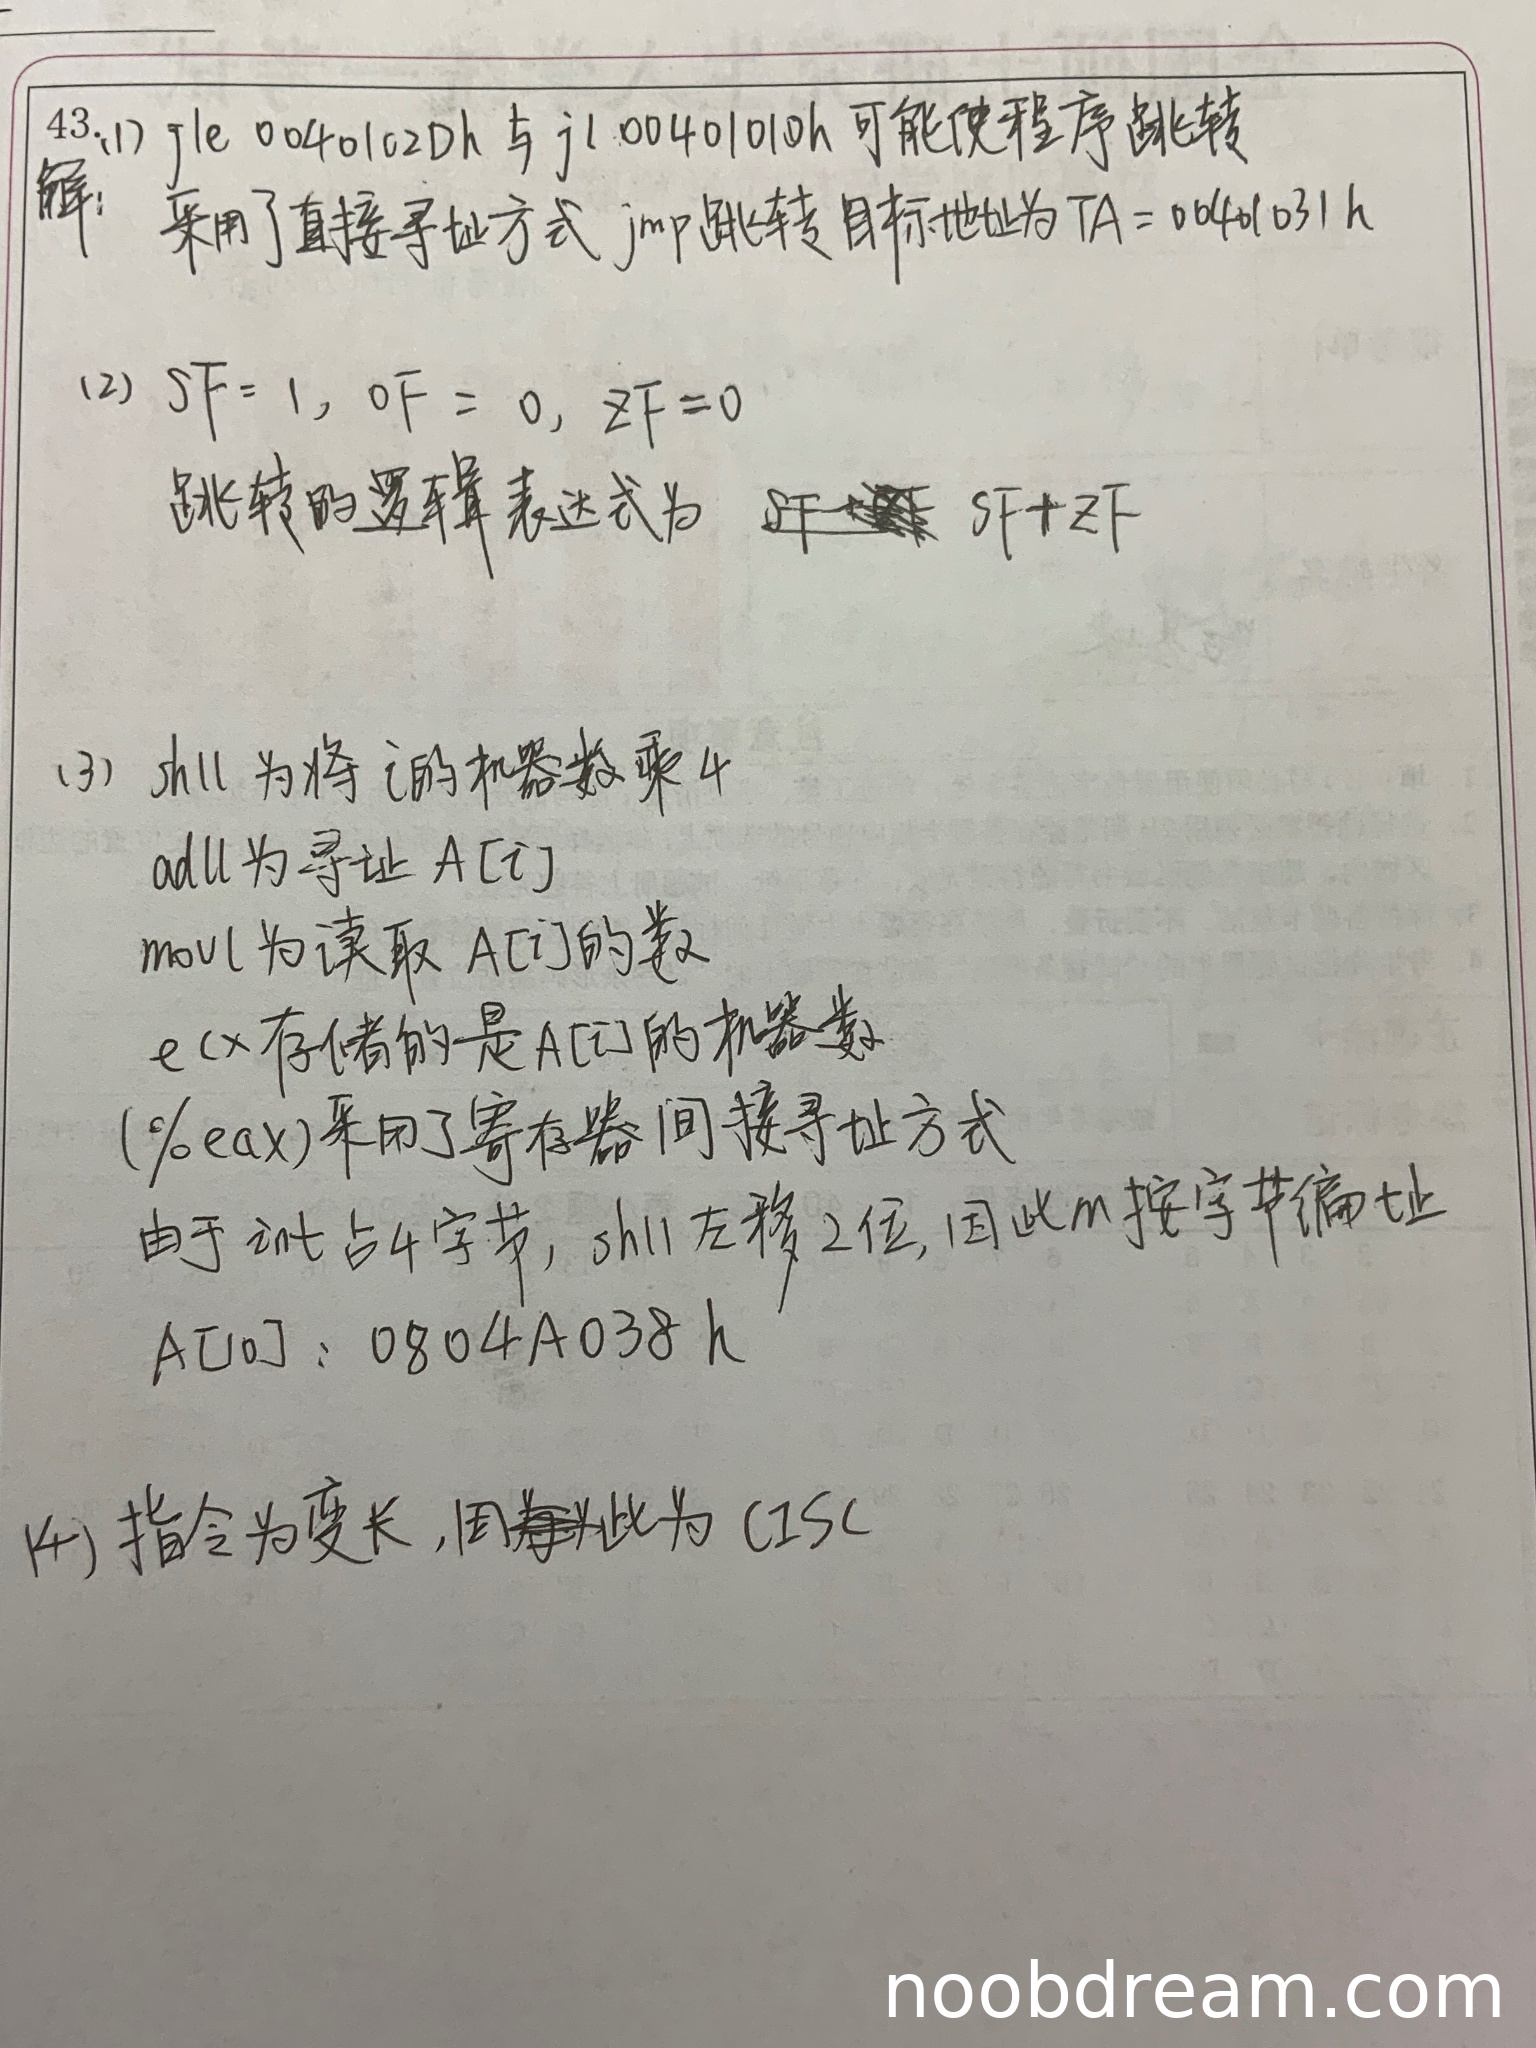 43.(1) jle 0040102Dh 与 jl 00401010h 可能使程序跳转
解: 采用了直接寻址方式 jmp跳转目标地址为TA=00401031h
(2) SF=1, OF=0, ZF=0
跳转的逻辑表达式为 SF+ZF
(3) shll 为将 i的机器数乘4
addl为寻址 A[i]
movl为读取 A[i]的数
ecx存储的是A[i]的机器数
(%eax)采用了寄存器间接寻址方式
由于 int 占4字节, shll 左移2位, 因此m按字节编址
A[10]: 0804A038h
(4) 指令为变长, 因此为 CISC
noobdream.com